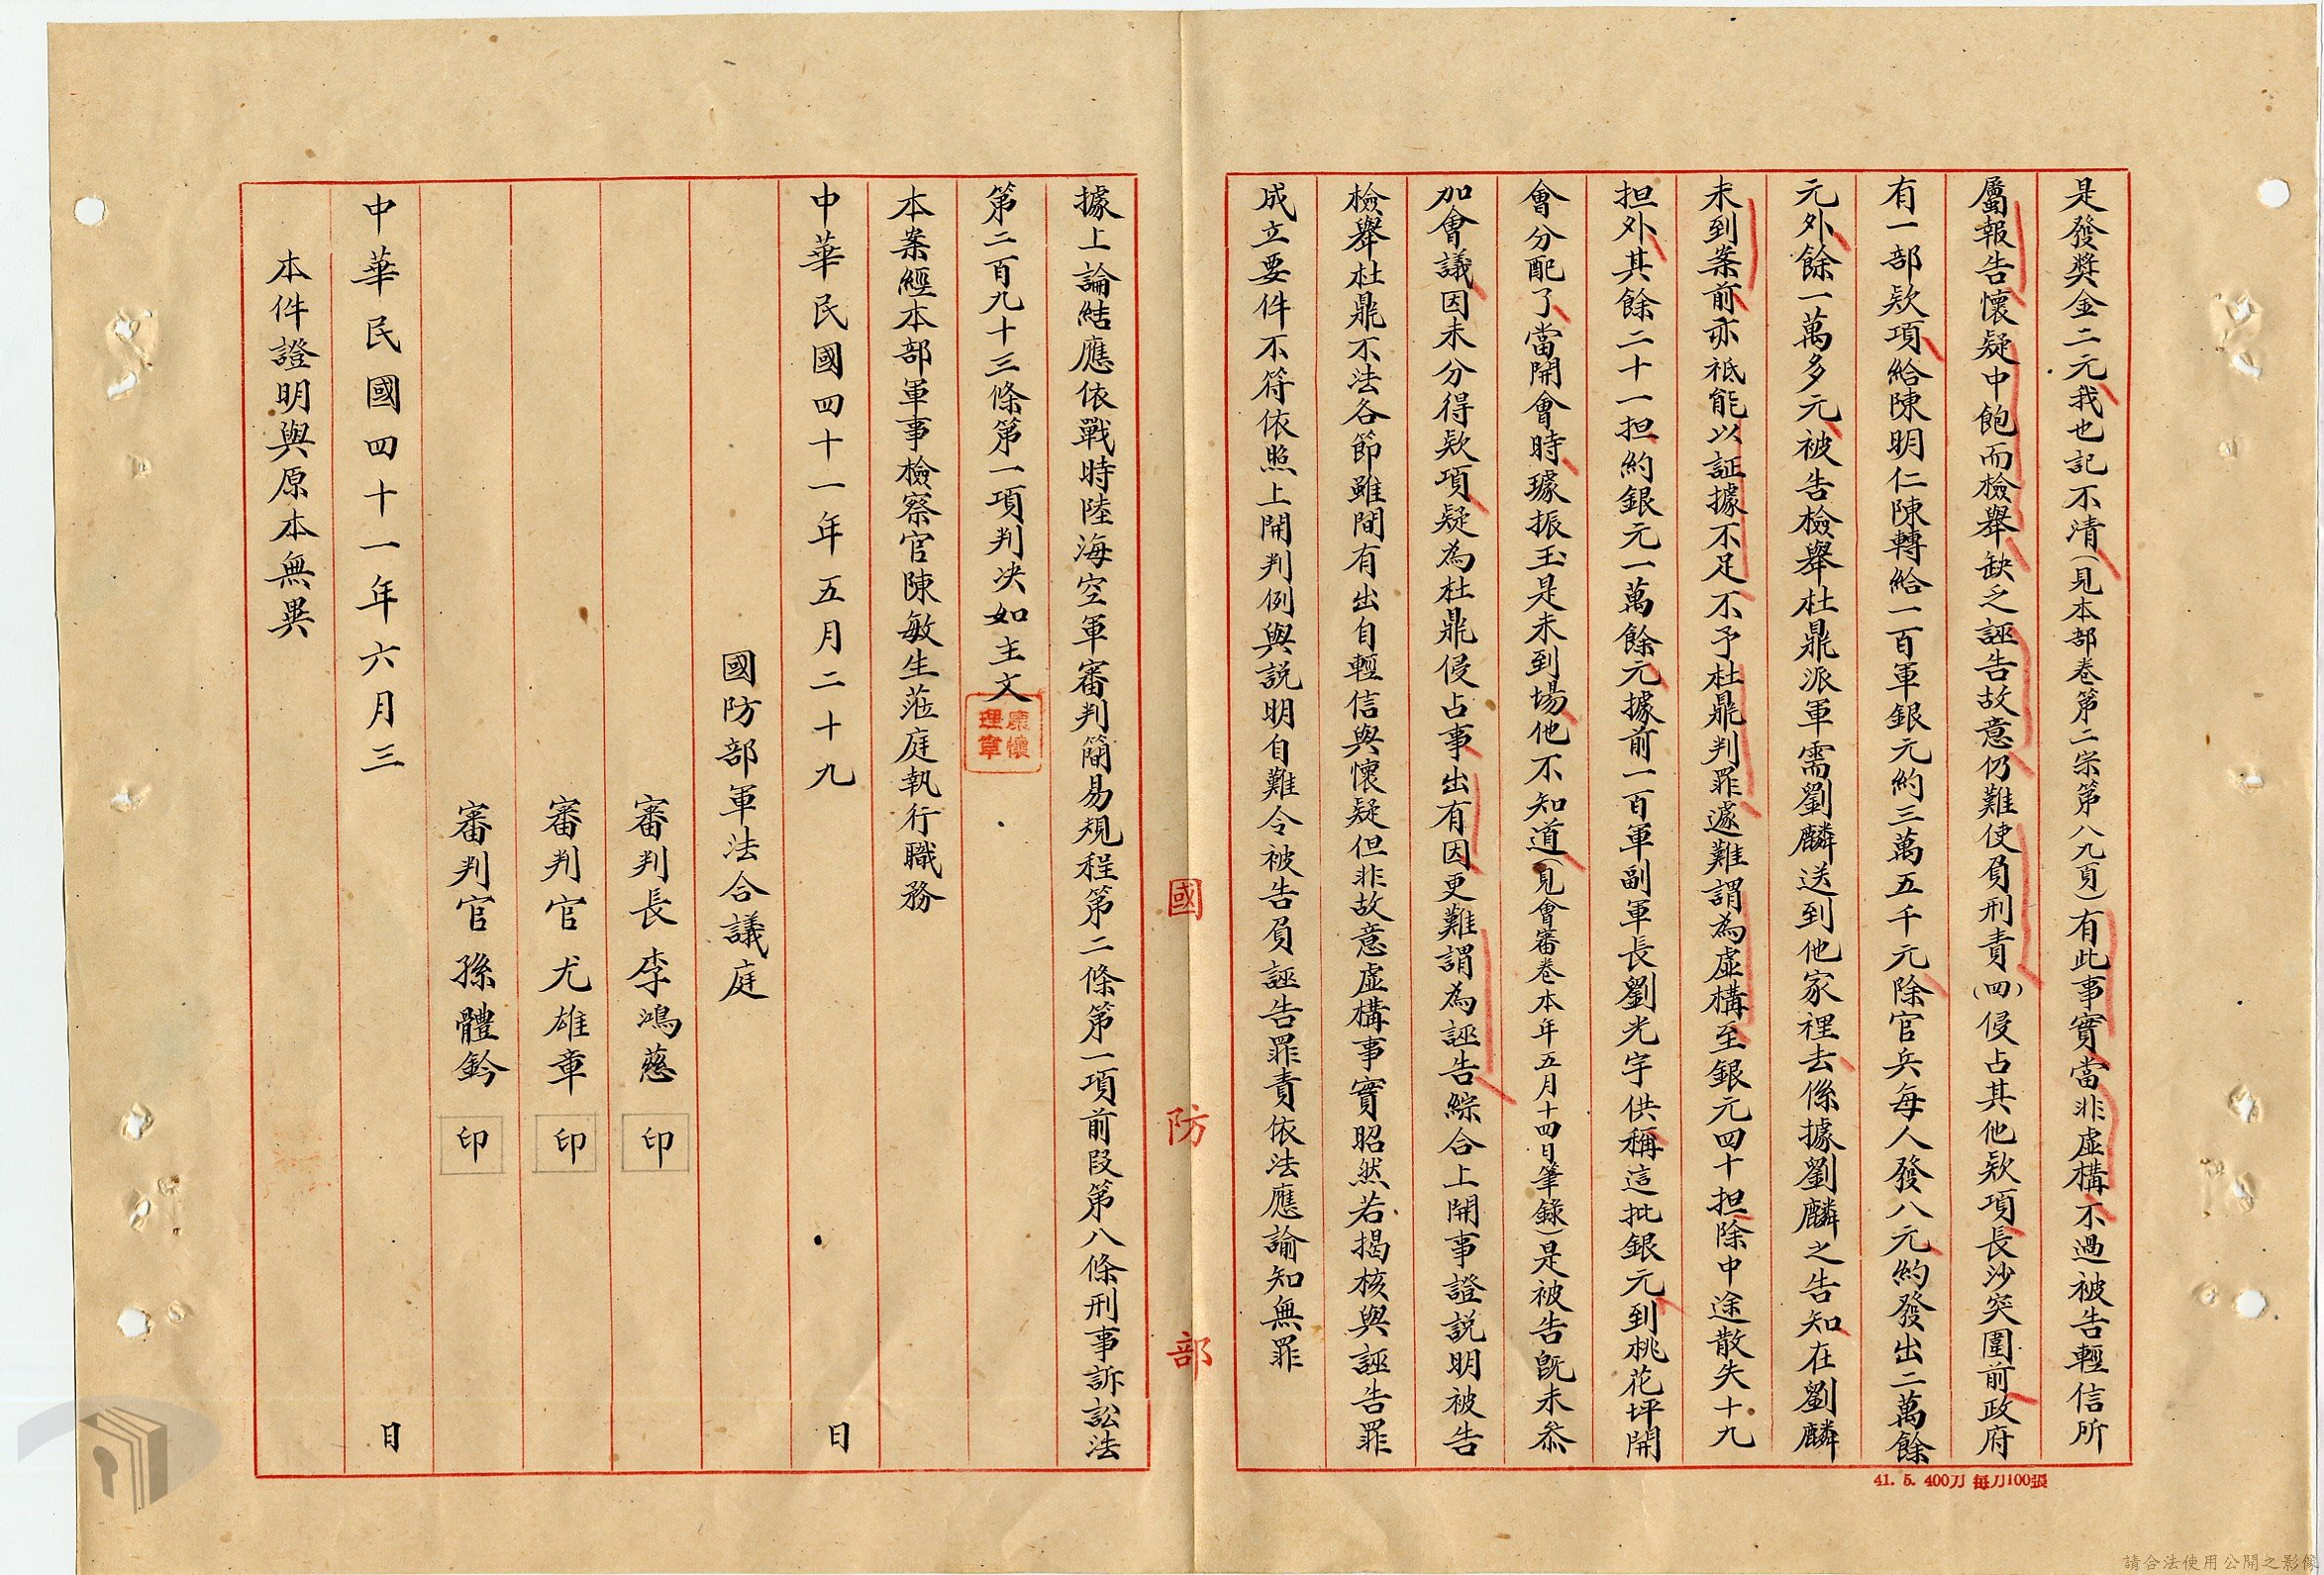 是發獎金二元我也記不清(見本部卷第二宗第八九頁)有此事實當非虛構不過被告輕信所
屬報告懷疑中飽而檢舉缺乏誣告故意仍難使負刑責(四)侵占其他欵項長沙突圍前政府
有一部欵項給陳明仁陳轉給一百軍銀元約三萬五千元除官兵每人發八元約發出二萬餘
元外餘一萬多元被告檢舉杜鼎派軍需劉麟送到他家裡去係據劉麟之告知在劉麟
未到案前亦祗能以証據不足不予杜鼎判罪遽難謂為虛構至銀元四十担除中途散失十九
担外其餘二十一担約銀元一萬餘元據前一百軍副軍長劉光宇供稱這批銀元到桃花坪開
會分配了當開會時璩振玉是未到場他不知道(見會審卷本年五月十四日筆錄)是被告旣未叅
加會議因未分得欵項疑為杜鼎侵占事出有因更難謂為誣告綜合上開事證説明被告
檢舉杜鼎不法各節雖間有出自輕信與懷疑但非故意虛構事實昭然若揭核與誣告罪
成立要件不符依照上開判例與説明自難令被告負誣告罪責依法應諭知無罪
國防部
41. 5. 400刀 每刀100張
據上論結應依戰時陸海空軍審判簡易規程第二條第一項前段第八條刑事訴訟法
第二百九十三條第一項判決如主文
本案經本部軍事檢察官陳敏生蒞庭執行職務
中華民國四十一年五月二十九日
國防部軍法合議庭
審判長李鴻慈 印
審判官尤雄章 印
審判官孫體鈐 印
中華民國四十一年六月三日
本件證明與原本無異
請合法使用公開之影像